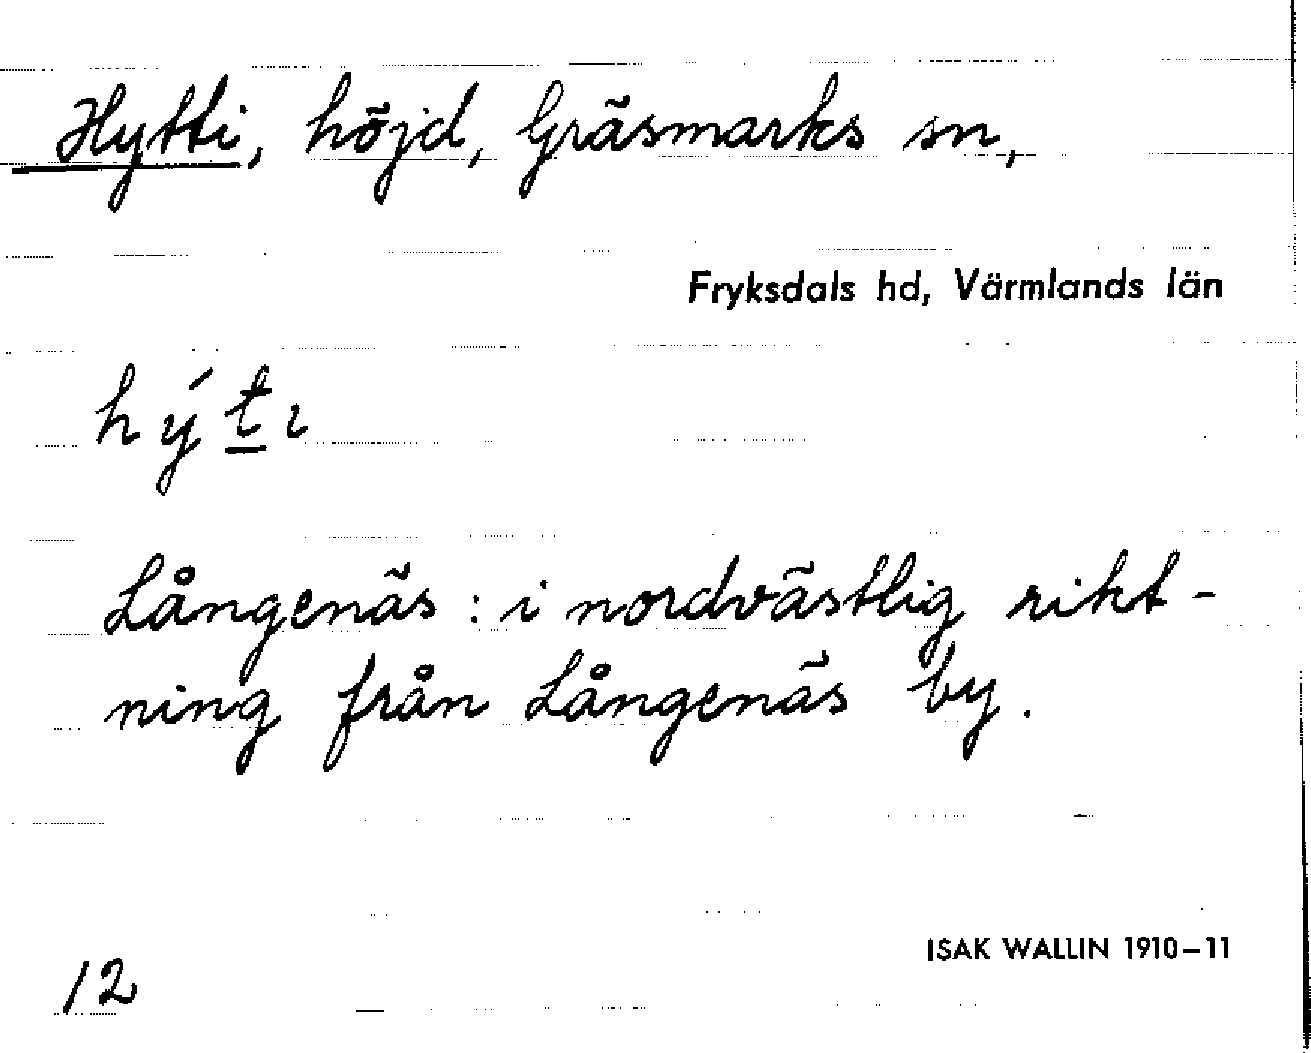 Hytti, höjd, Gräsmarks sn,
Fryksdals hd, Värmlands län
hýt̲ɩ
Långenäs: i nordvästlig rikt-
ning från Långenäs by.
ISAK WALLIN 1910–11
12